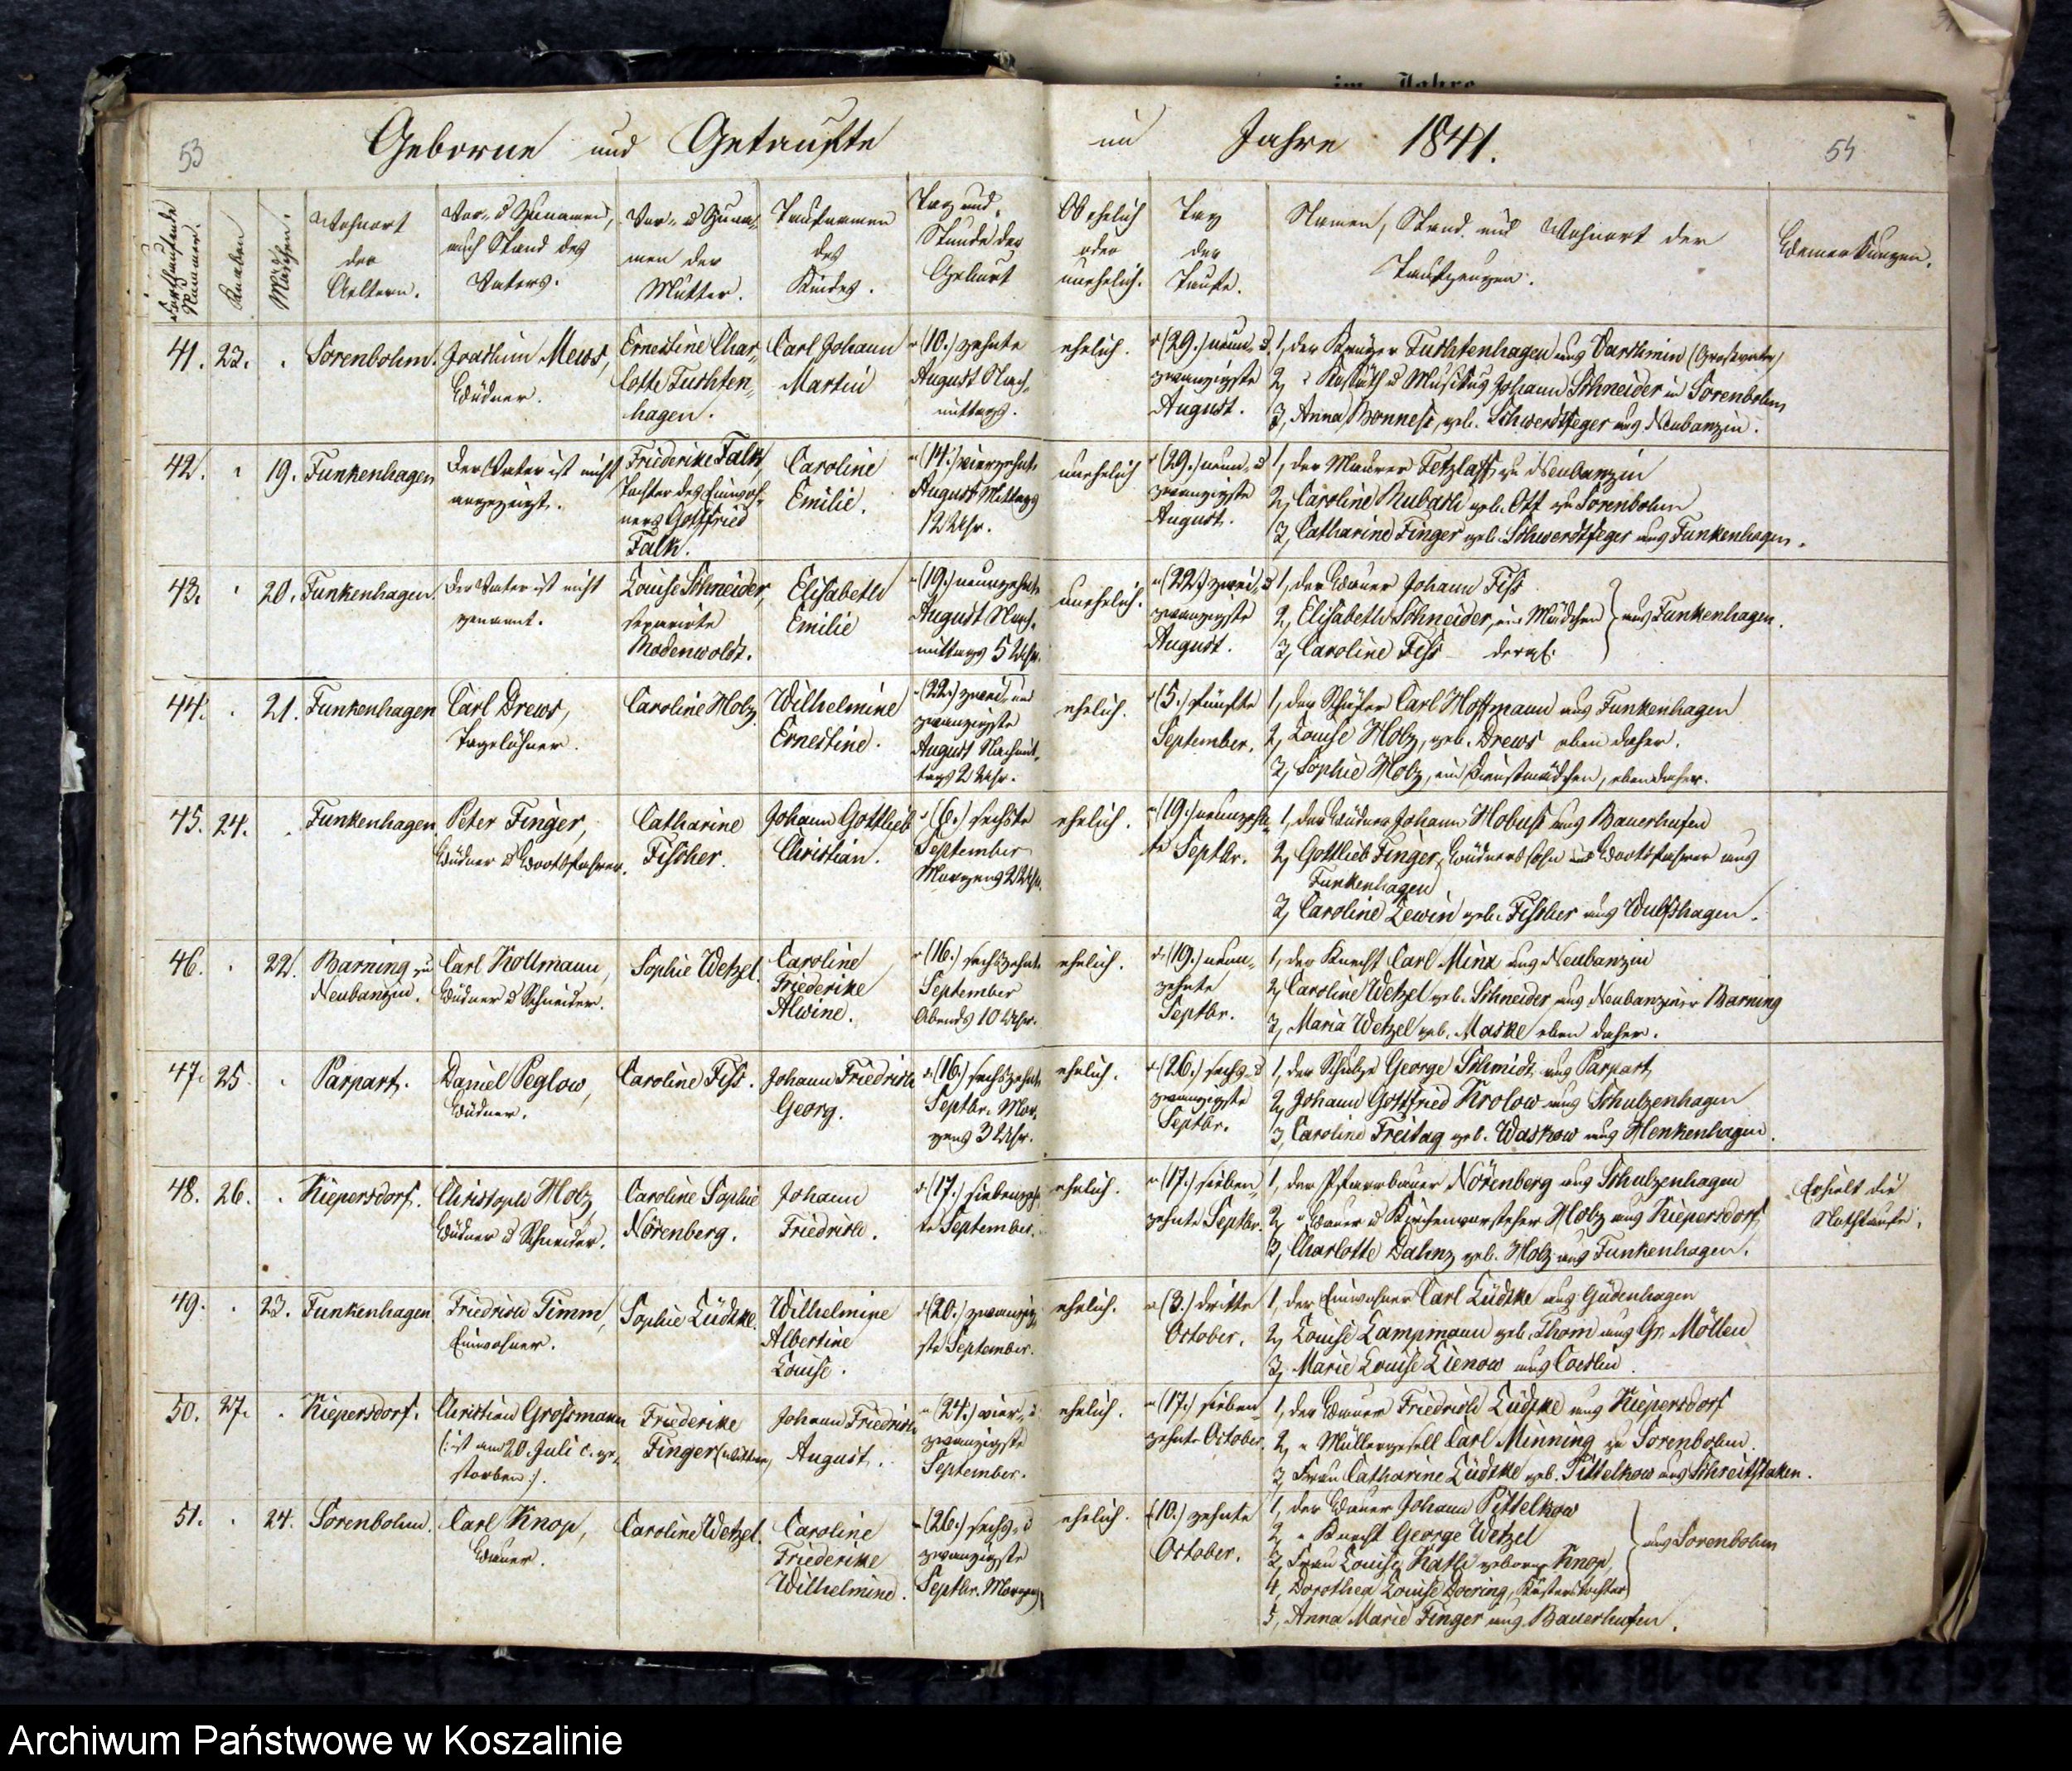 im Jahre
53
Geborne und Getaufte
im Jahre 1841.
54
Fortlaufende Nummer.
Knaben
Mädchen.
Wohnort der Aeltern.
Vor- u Zunamen, auch Stand des Vaters.
Vor- u Zunamen der Mutter.
Taufnamen des Kindes.
Tag und Stunde der Geburt
Ob ehelich oder unehelich.
Tag der Taufe.
Namen, Stand und Wohnort der Taufzeugen.
Bemerkungen.
41. 23. Sorenbohm. Joachim Mews, Ernestine Char- Carl Johann (10.) zehnte ehelich. (29.) neun- u. 1, der Krüger Fuchtenhagen aus Varchmin (Großvater)
Büdner. lotte Fuchten- Martin August Nach- zwanzigste 2, Kossäth u Musikus Johann Schneider in Sorenbohm
hagen. mittags. August. 3, Anna Bonness, geb. Schwerdtfeger aus Neubanzin.
42. 19. Funkenhagen Der Vater ist nicht Friederike Falk, Caroline (14.) vierzehnte unehelich (29.) neun- u 1, der Maurer Tetzlaff zu Neubanzin
angezeigt. Tochter des Einwoh- Emilie. August Mittags zwanzigste 2, Caroline Rubach geb. Ott zu Sorenbohm
ners Gottfried 12 Uhr. August. 3, Catharine Finger geb. Schwerdtfeger aus Funkenhagen.
Falk.
43. 20. Funkenhagen. Der Vater ist nicht Louise Schneider, Elisabeth (19.) neunzehnte unehelich. (22.) zwei- u 1, der Bauer Johann Fiss
genannt. separirte Emilie August Nach- zwanzigste 2, Elisabeth Schneider, ein Mädchen aus Funkenhagen.
Modenwoldt. mittags 5 Uhr. August. 3, Caroline Fiss dergl.
44. 21. Funkenhagen Carl Drews, Caroline Holz. Wilhelmine (22.) zwei- und ehelich. (5.) fünfte 1, der Schäfer Carl Hoffmann aus Funkenhagen
Tagelöhner. Ernestine. zwanzigste September. 2, Louise Holz, geb. Drews eben daher.
August Nachmit- 3, Sophie Holz, ein Dienstmädchen, eben daher.
tags 2 Uhr.
45. 24. Funkenhagen. Peter Finger, Catharine Johann Gottlieb (6.) sechste ehelich. (19.) neunzehn- 1, der Büdner Johann Hobuss aus Bauerhufen
Büdner u Bootsfahrer. Fischer. Christian. September te Septbr. 2, Gottlieb Finger, Büdnerssohn und Bootsfahrer aus
Morgens 2 Uhr. Funkenhagen
3, Caroline Lewin geb. Fischer aus Wulfshagen.
46. 22. Barning zu Carl Kollmann, Sophie Wetzel. Caroline (16.) sechszehnte ehelich. (19.) neun- 1, der Knecht Carl Minx aus Neubanzin
Neubanzin. Büdner u Schneider. Friederike September zehnte 2, Caroline Wetzel geb. Schneider aus Neubanziner Barning
Alwine. Abends 10 Uhr. Septbr. 3, Maria Wetzel geb. Maske eben daher.
47. 25. Parpart. Daniel Peglow, Caroline Fiss. Johann Friedrich (16.) sechszehnte ehelich. (26.) sechs- u 1, der Schulze George Schmidt aus Parpart
Büdner. Georg. Septbr. Mor- zwanzigste 2, Johann Gottfried Krolow aus Schulzenhagen
gens 3 Uhr. Septbr. 3, Caroline Freitag geb. Waskow aus Henkenhagen.
48. 26. Kiepersdorf. Christoph Holz, Caroline Sophie Johann (17.) siebenzehn- ehelich. (17.) sieben- 1, der Pfarrbauer Nörenberg aus Schulzenhagen Erhielt die
Büdner u Schneider. Nörenberg. Friedrich. te September. zehnte Septbr. 2, Bauer u Kirchenvorsteher Holz aus Kiepersdorf, Nothtaufe.
3, Charlotte Damz geb. Holz aus Funkenhagen.
49. 23. Funkenhagen. Friedrich Timm, Sophie Lüdtke. Wilhelmine (20.) zwanzig- ehelich. (3.) dritte 1, der Einwohner Carl Lüdtke aus Güdenhagen
Einwohner. Albertine ste September. October. 2, Louise Lampmann geb. Thom aus Gr. Möllen
Louise. 3, Marie Louise Lienow aus Coeslin.
50. 27. Kiepersdorf. Christian Grossmann Friederike Johann Friedrich (24.) vier- u ehelich. (17.) sieben- 1, der Bauer Friedrich Lüdtke aus Kiepersdorf
(:ist am 20. Juli c. ge- Finger (Wittwe) August. zwanzigste zehnte October. 2, Müllergesell Carl Minning zu Sorenbohm.
storben:). September. 3, Frau Catharine Lüdtke geb. Pittelkow aus Schreitstaken.
51. 24. Sorenbohm. Carl Knop, Caroline Wetzel. Caroline (26.) sechs- u ehelich. (10.) zehnte 1, der Bauer Johann Pittelkow
Bauer. Friederike zwanzigste October. 2, Knecht George Wetzel aus Sorenbohm
Wilhelmine. Septbr. Morgens 3, Frau Louise Kath geborne Knop,
4, Dorothea Louise Doering, Küsterstochter
5, Anna Marie Finger aus Bauerhufen.
Archiwum Państwowe w Koszalinie